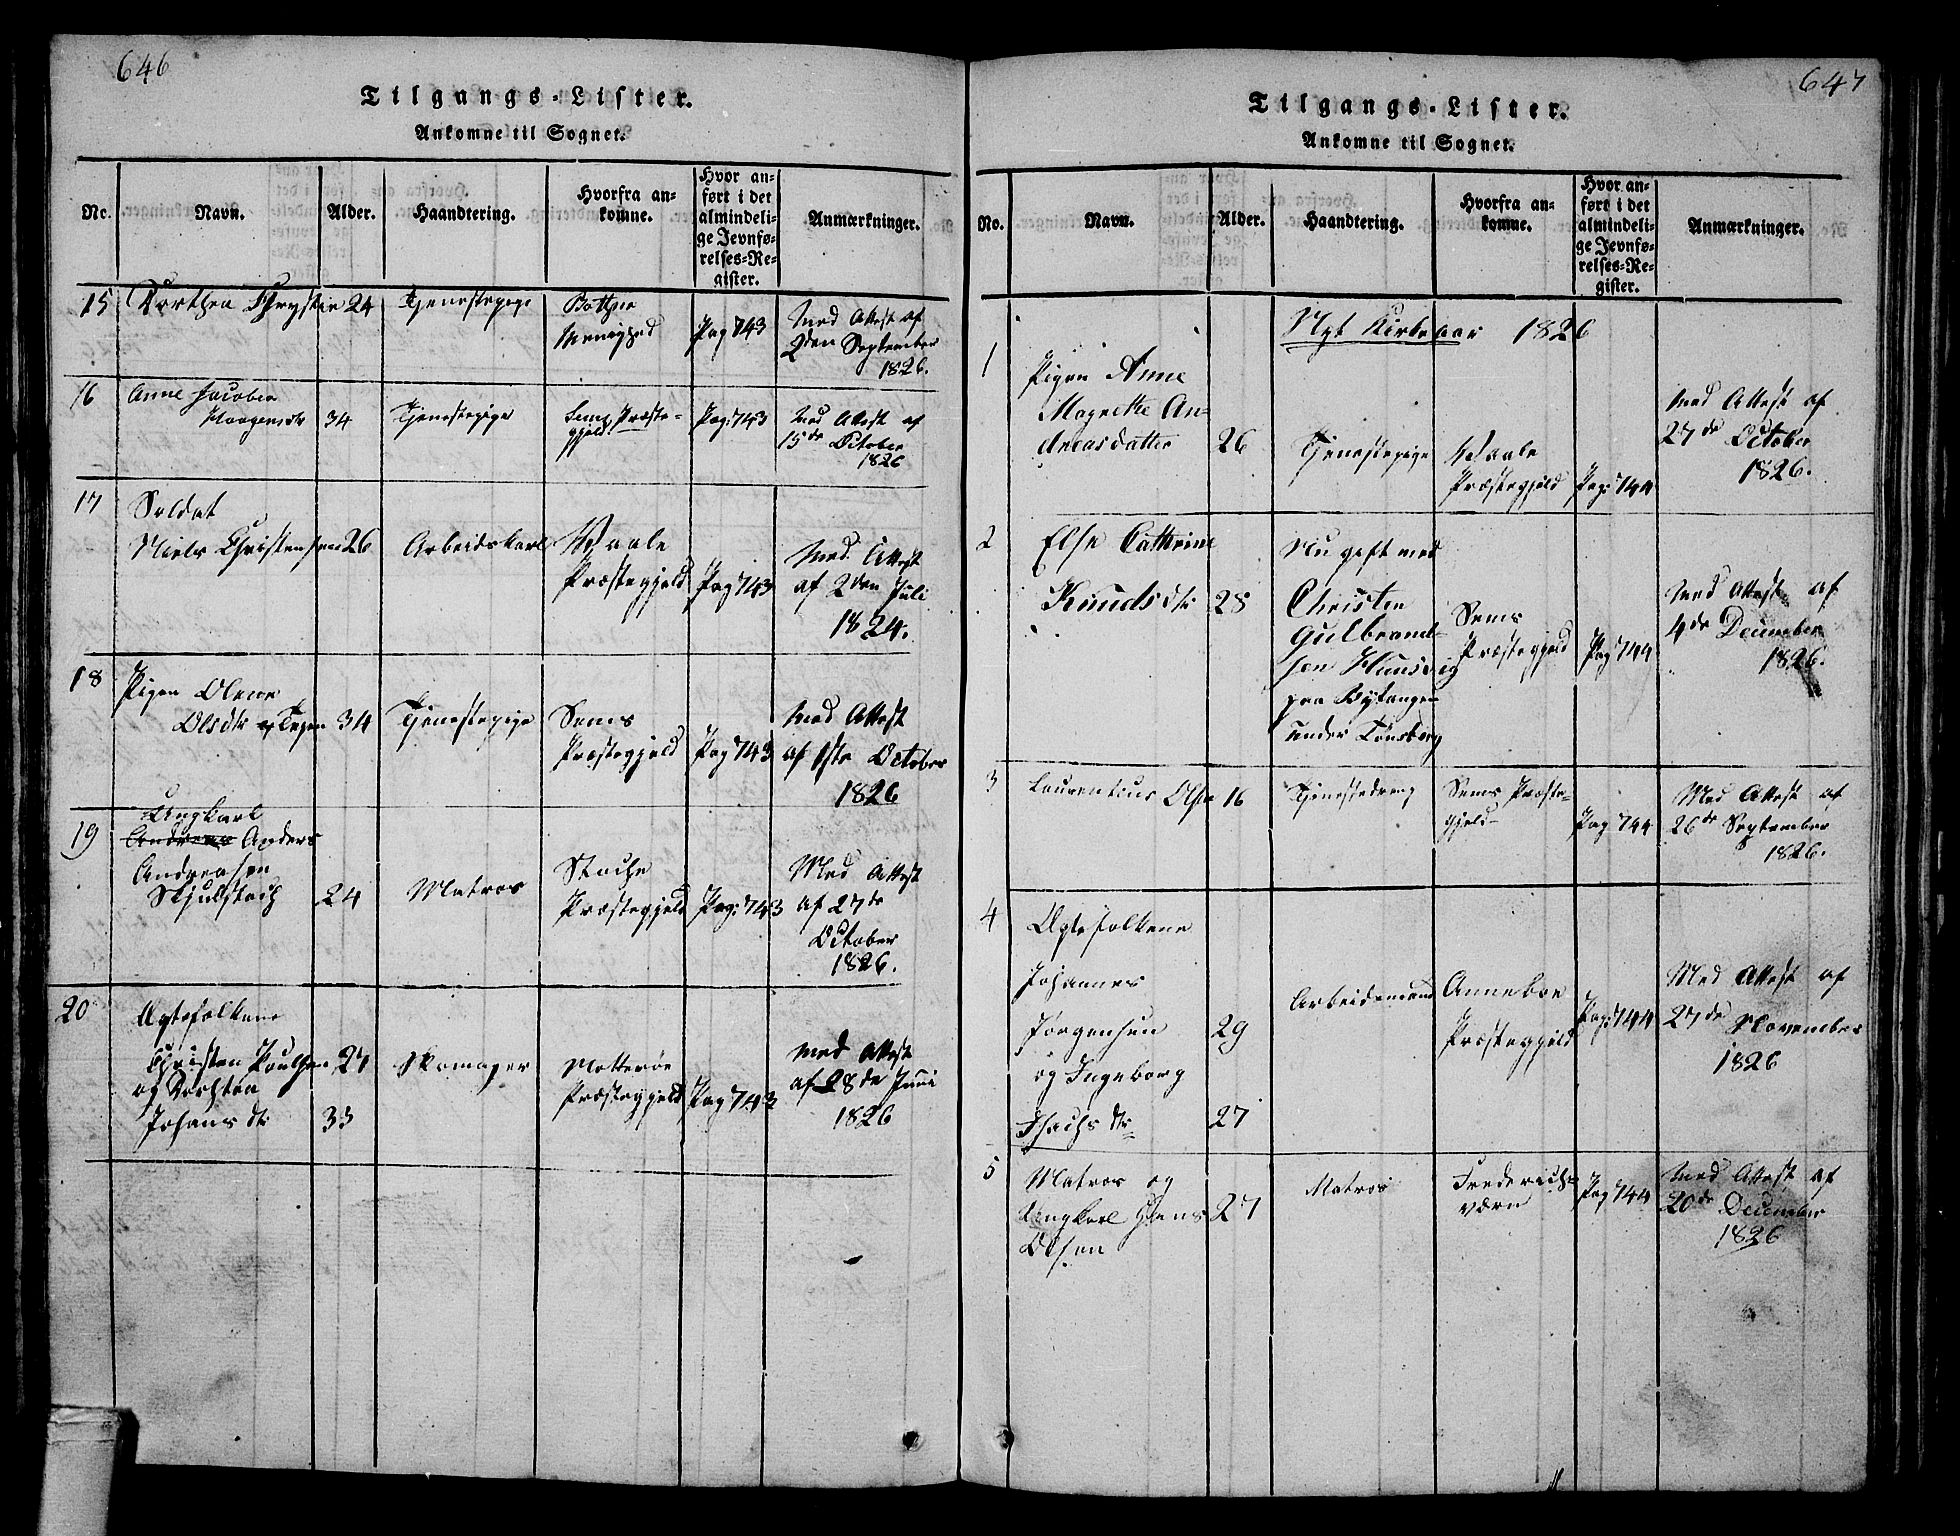 646
Tilgangs-Lister.
Ankomne til Sognet.
No.
Navn.
Alder.
Haandtering.
Hvorfra an-
komne.
Hvor an-
ført i det
almindeli-
ge Jevnfø-
relses-Re-
gister.
Anmærkninger.
15
Dorthea 24
Tjenestepige
Menighed
Pag 743
Med Attest af
2den September
1826.
16
Anne Jacobea
34
Tjenestepige
Sems Præste-
gjeld
Pag: 743
Med Attest af
15de October
1826
17
Soldat
Niels Christensen 26
Arbeidskarl
Waale
Præstegjeld
Pag 743
Med Attest
af 2den Juli
1824.
18
Pigen
Olsdtr 34
Tjenestepige
Sems
Præstegjeld
Pag 743
Med Attest
af 1ste October
1826
19
Ungkarl
Anders
Andreasen
24
Matros
Stoche
Præstegjeld
Pag: 743
Med Attest
af 27de
October
1826.
20
Ægtefolkene
Christen Poulsen 27
og
Johans dtr 33
Skomager
Nøtterøe
Præstegjeld
Pag 743
Med Attest
af 28de Juni
1826
647
Tilgangs-Lister.
Ankomne til Sognet.
No.
Navn.
Alder.
Haandtering.
Hvorfra an-
komne.
Hvor an-
ført i det
almindeli-
ge Jevnfø-
relses-Re-
gister.
Anmærkninger.
Nyt Kirkeaar 1826
1
Pigen Anne
Magrethe An-
dreasdatter
26
Tjenestepige
Waale
Præstegjeld
Pag: 744
Med Attest af
27de October
1826.
2
Else Cathrine
Knuds dtr 28
Nu gift med
Christen
Gulbrand-
sen
paa Bytangen
under Tønsberg
Sems
Præstegjeld
Pag 744
Med Attest af
4de December
1826.
3
Laurentius Olsen 16
Tjenestedreng
Sems Præste-
gjeld
Pag 744
Med Attest af
26de September
1826.
4
Ægtefolkene
Johannes
Jørgensen 29
og Ingeborg
Isachs dtr 27
Arbeidsmand
Anneboe
Præstegjeld
Pag: 744
Med Attest af
27de November
1826
5
Matros og
Ungkarl Hans 27
Olsen
Matros
Frederichs-
værn
Pag 744
Med Attest af
20de December
1826